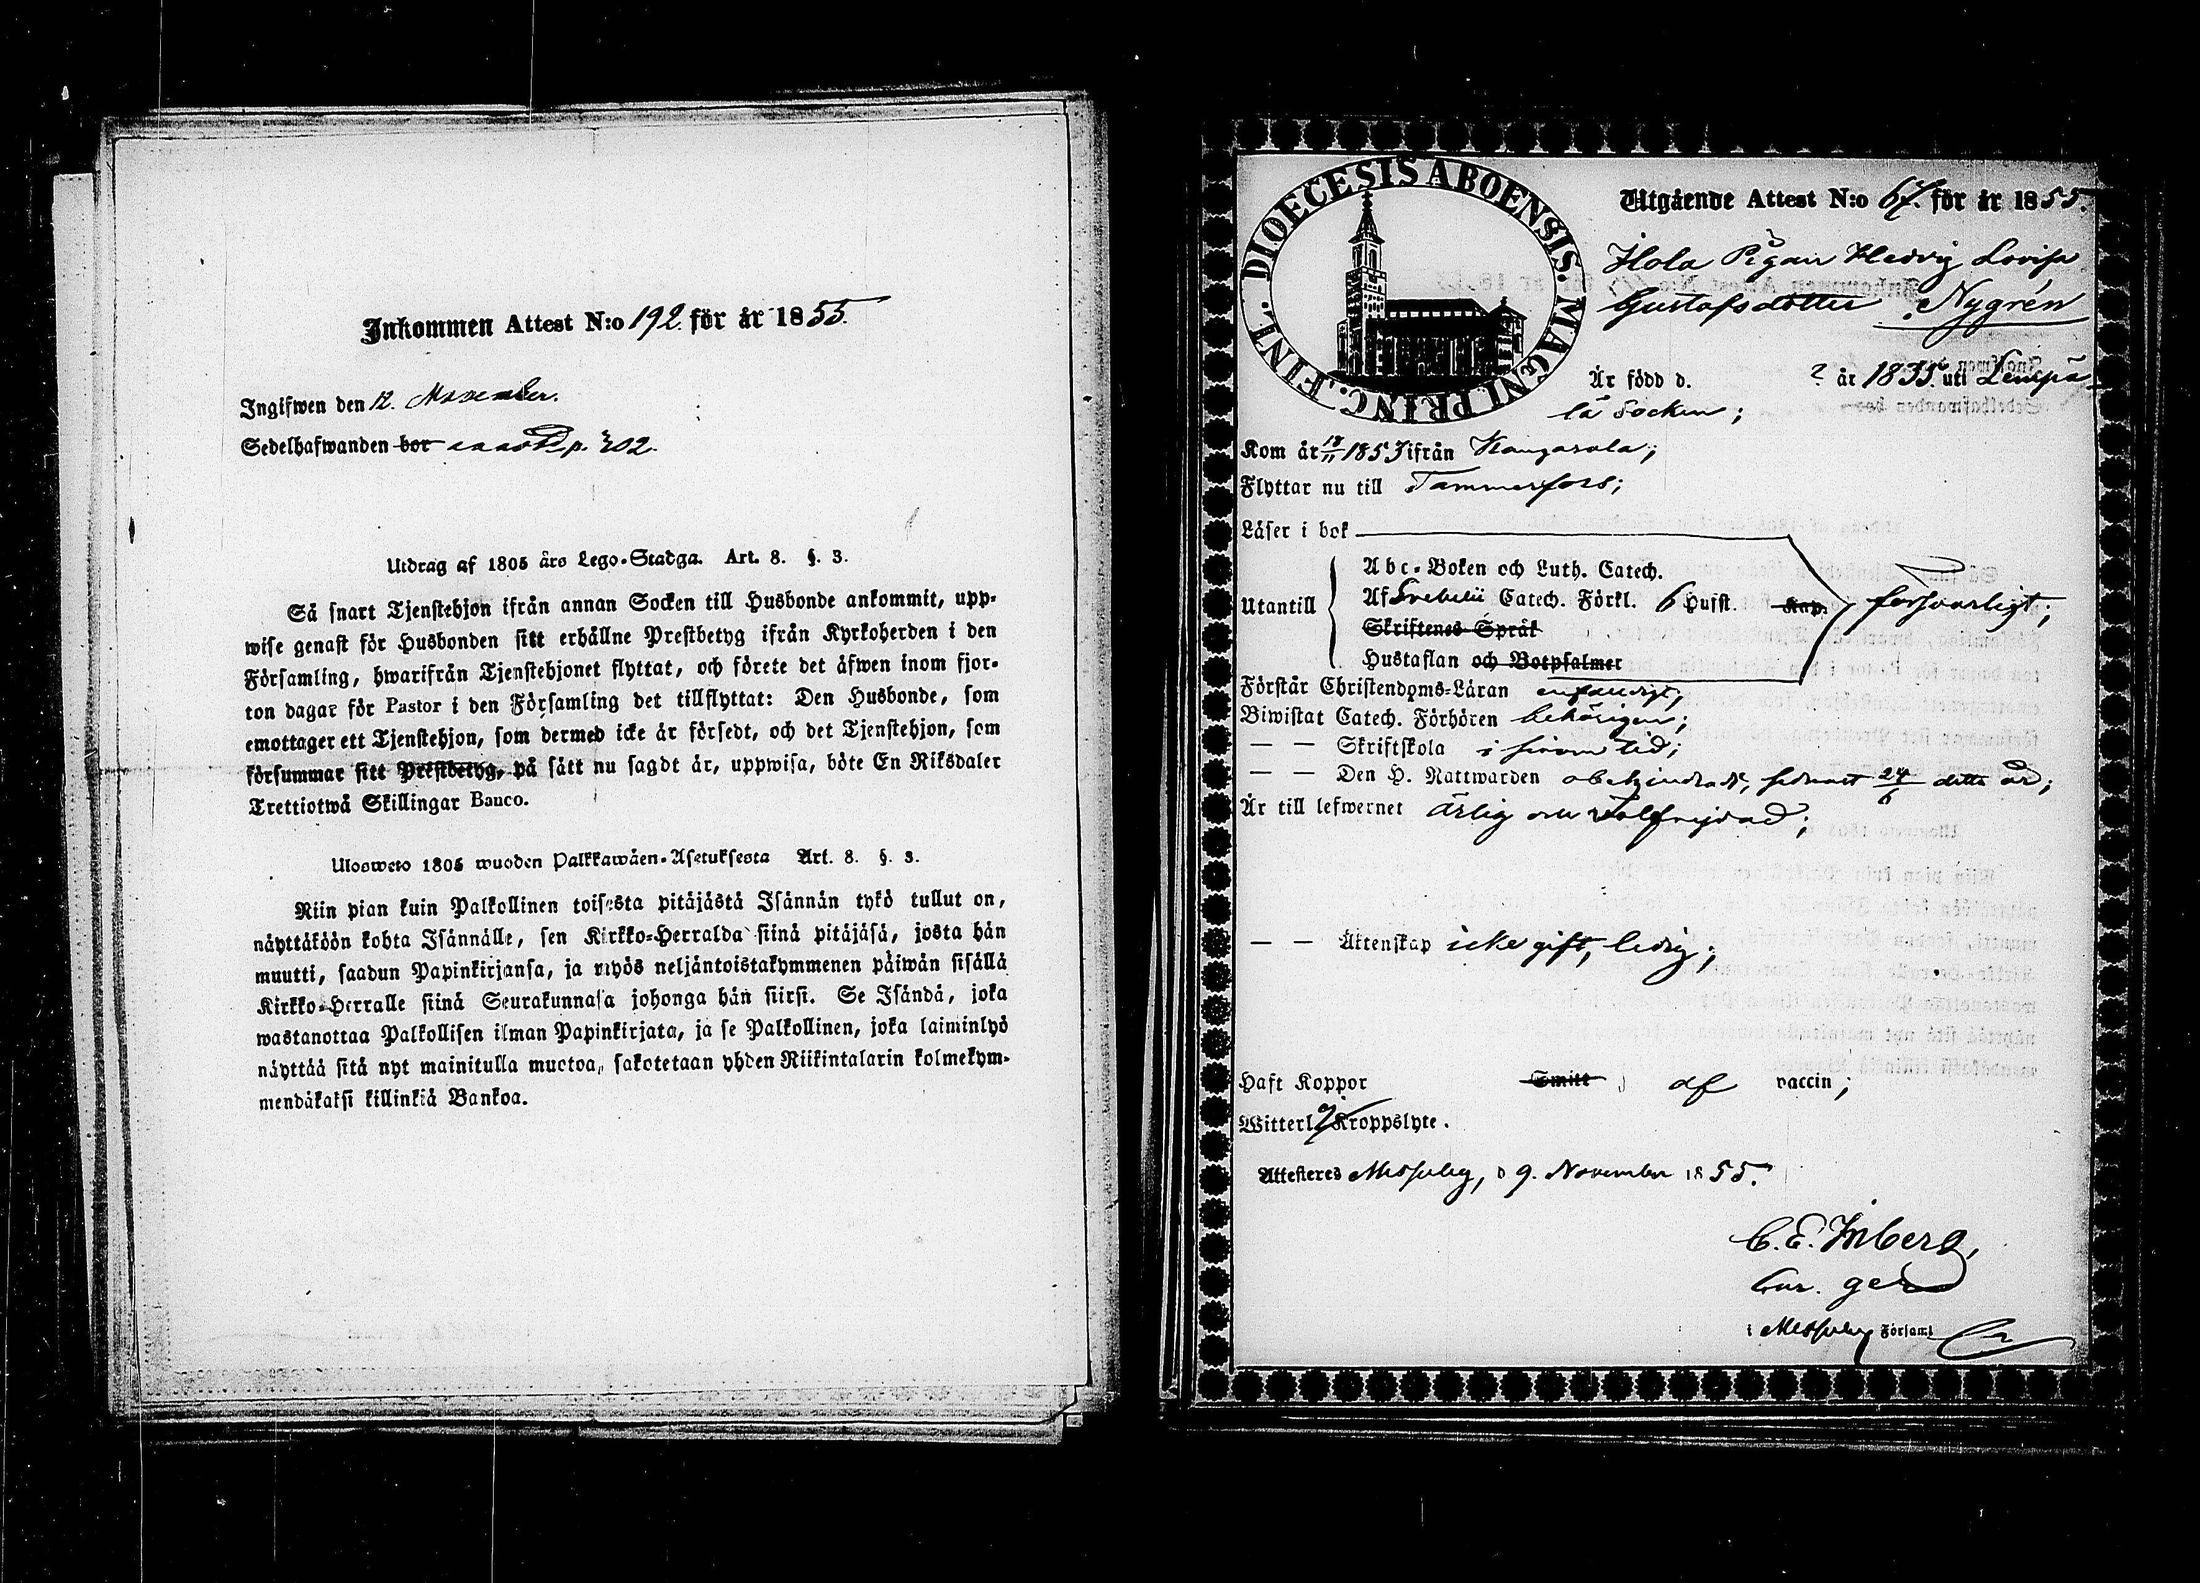 Inkommen Attest N:o 192. för år 1855.
Ingifwen den 12. November.
Sedelhafwanden bor p. 302.
Utdrag af 1805 års Lego-Stadga. Art. 8. §. 3.
Så snart Tjenstehjon ifrån annan Socken till Husbonde ankommit, upp-
wise genast för Husbonden sitt erhållne Prestbetyg ifrån Kyrkoherden i den
Församling, hwarifrån Tjenstehjonet flyttat, och förete det äfwen inom fjor-
ton dagar för Pastor i den Församling det tillflyttat: Den Husbonde, som
emottager ett Tjenstehjon, som dermed icke är försedt, och det Tjenstehjon, som
försummar sitt Prestbetyg, på sätt nu sagdt är, uppwisa, böte En Riksdaler
Trettiotwå Skillingar Banco.
Ulosweto 1805 wuoden Palkkawäen-Asetuksesta Art. 8. §. 3.
Niin pian kuin Palkollinen toisesta pitäjästä Isännän tykö tullut on,
näyttäköön kohta Isännälle, sen Kirkko-Herralda siinä pitäjäsä, josta hän
muutti, saadun Papinkirjansa, ja myös neljäntoistakymmenen päiwän sisällä
Kirkko-Herralle siinä Seurakunnasa johonga hän siirsi. Se Isändä, joka
wastanottaa Palkollisen ilman Papinkirjata, ja se Palkollinen, joka laiminlyö
näyttää sitä nyt mainitulla muotoa, sakotetaan yhden Riikintalarin kolmekym-
mendäkaksi killinkiä Bankoa.
DIOECESIS ABOENSIS. MAGNI PRINC. FINL.
Utgående Attest N:o 67. för år 1855.
Pigan Hedvig Lovisa
Gustafsdotter Nygrén
Är född d. ? år 1835. uti Lempä-
lä Socken;
Kom år 18/11 1853 ifrån Kangasala;
Flyttar nu till Tammerfors;
Läser i bok
Abc-Boken och Luth. Catech.
Utantill Af Svebelii Catech. Förkl. 6 Hufst. Kap. försvarligt;
Skriftenes Språk
Hustaflan och Botpsalmer
Förstår Christendoms-Läran enfaldigt;
Biwistat Catech. Förhören behörigen;
— — Skriftskola i sinom tid;
— — Den H. Nattwarden obehindradt, sednast 24/6 detta år;
Är till lefwernet ärlig och välfrejdad;
— — Äktenskap icke gift, ledig;
Haft Koppor Smitt af vaccin;
Witterl. Kroppslyte.
Attesteres Messuby, d 9. November 1855.
C. E. Inberg,
i Messuby Församl